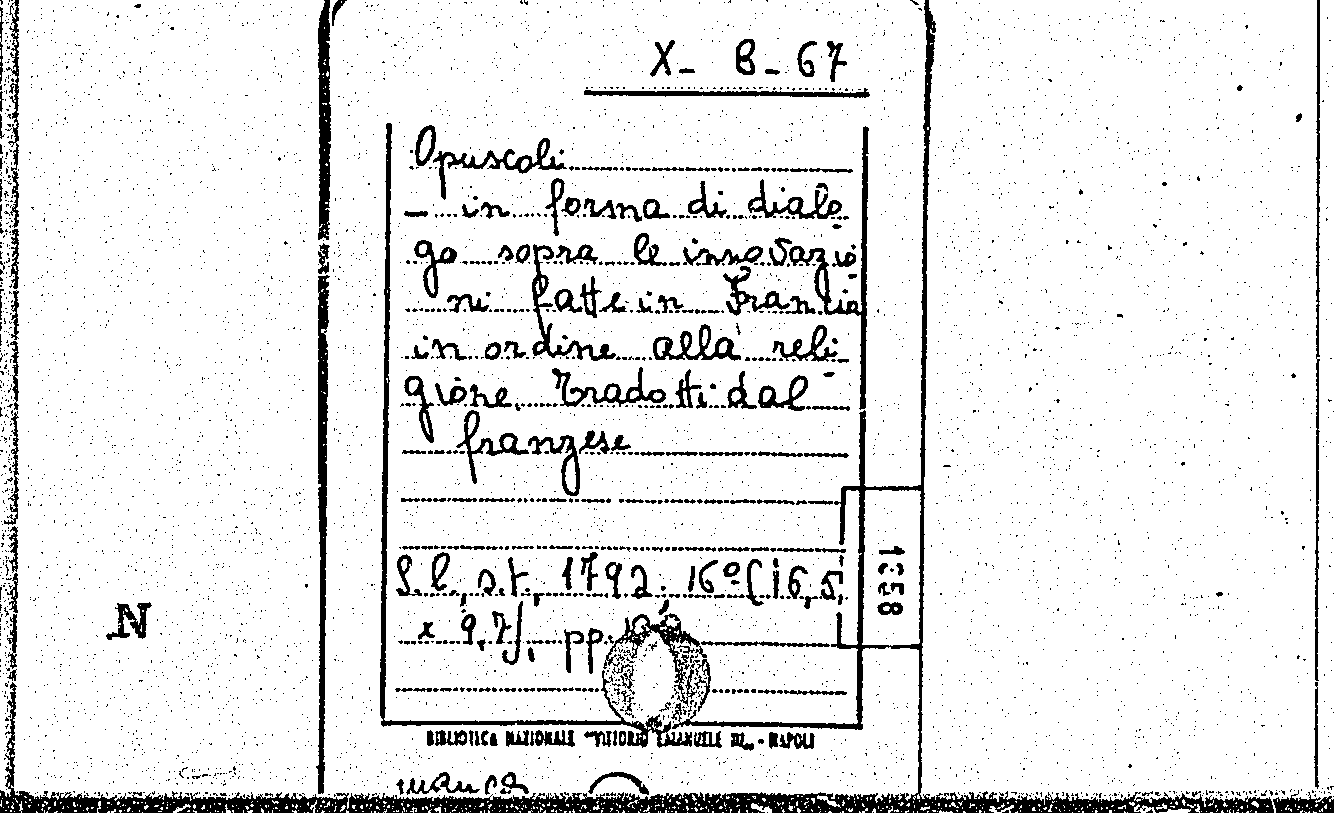 X- B- 67
Opuscoli
- in forma di dialo-
go sopra le innovazio-
ni fatte in Francia
in ordine alla reli-
gione. Tradotti dal
franzese
S.l., s.t., 1792. 16º (16,5,
x 9,7), pp.
BIBLIOTECA NAZIONALE "VITTORIO EMANUELE III„ - NAPOLI
1358
N
manca